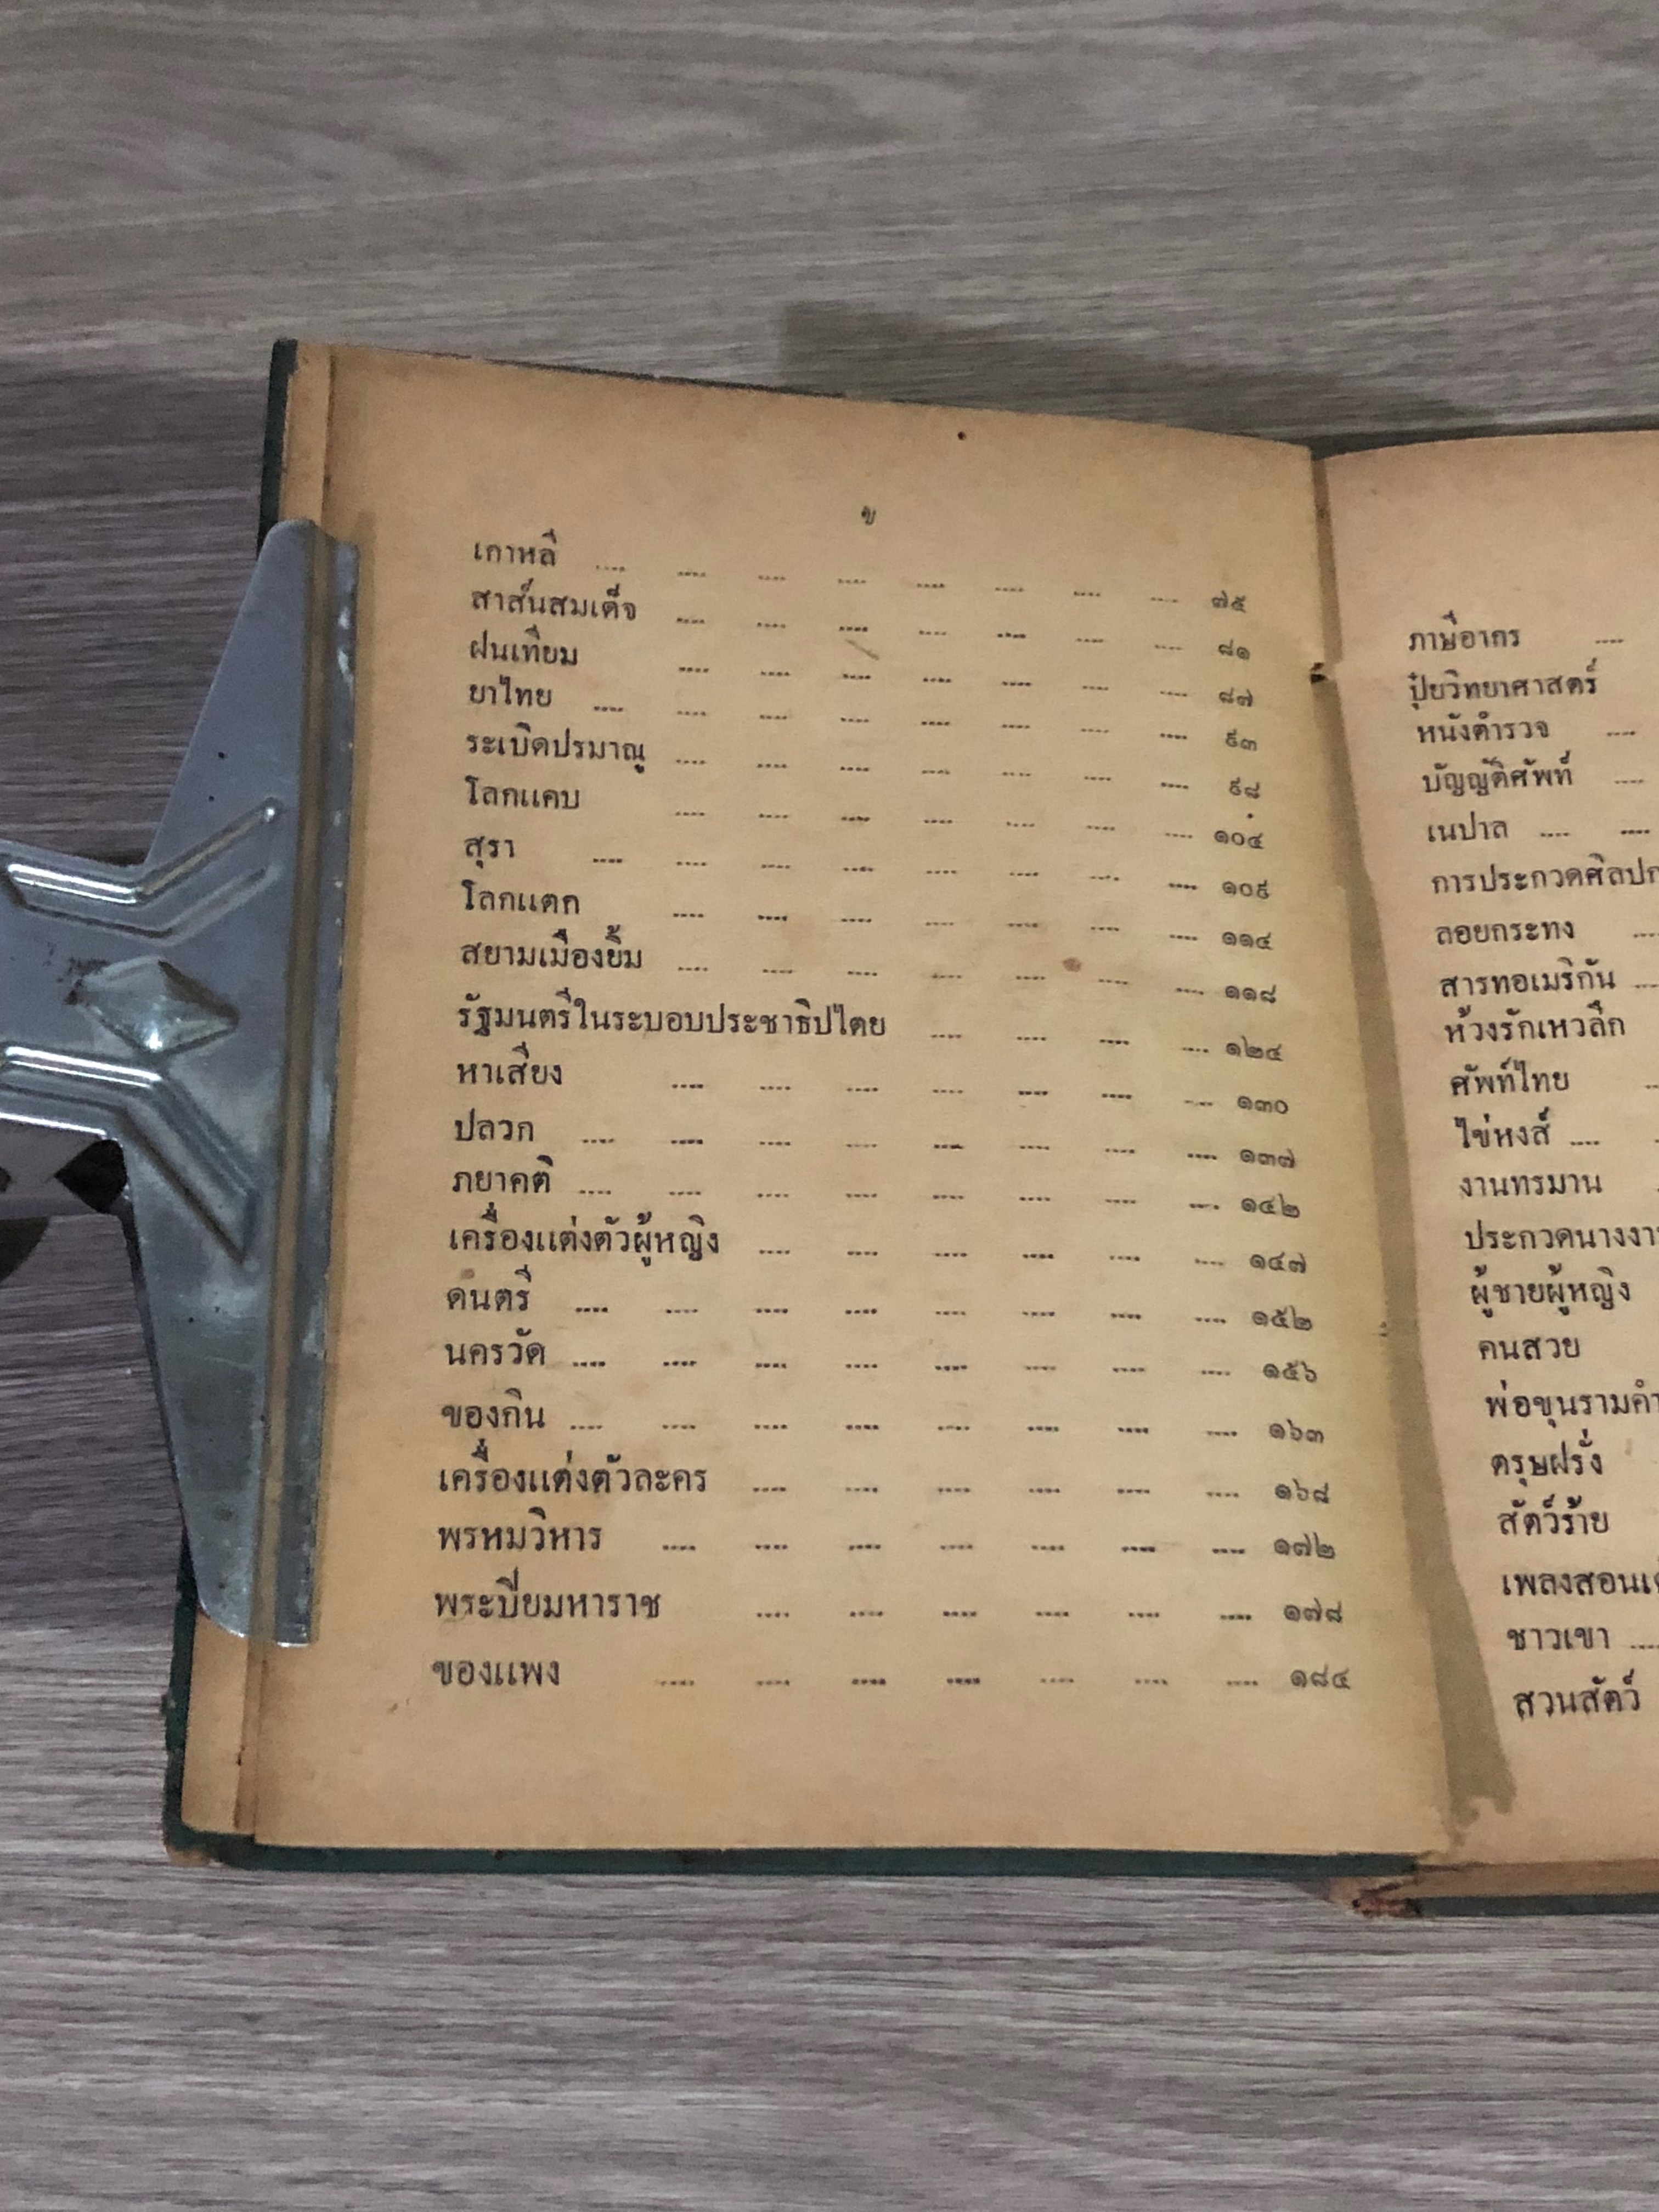 ข
เกาหลี .... .... .... .... .... .... .... .... ๗๕
สาส์นสมเด็จ .... .... .... .... .... .... .... ๘๑
ฝนเทียม .... .... .... .... .... .... .... ๘๗
ยาไทย .... .... .... .... .... .... .... .... ๙๓
ระเบิดปรมาณู .... .... .... .... .... .... .... ๙๘
โลกแคบ .... .... .... .... .... .... .... ๑๐๔
สุรา .... .... .... .... .... .... .... .... ๑๐๙
โลกแตก .... .... .... .... .... .... .... ๑๑๔
สยามเมืองยิ้ม .... .... .... .... .... .... .... ๑๑๘
รัฐมนตรีในระบอบประชาธิปไตย .... .... .... .... ๑๒๔
หาเสียง .... .... .... .... .... .... .... ๑๓๐
ปลวก .... .... .... .... .... .... .... .... ๑๓๗
ภยาคติ .... .... .... .... .... .... .... .... ๑๔๒
เครื่องแต่งตัวผู้หญิง .... .... .... .... .... .... ๑๔๗
ดนตรี .... .... .... .... .... .... .... .... ๑๕๒
นครวัด .... .... .... .... .... .... .... .... ๑๕๖
ของกิน .... .... .... .... .... .... .... .... ๑๖๓
เครื่องแต่งตัวละคร .... .... .... .... .... .... ๑๖๘
พรหมวิหาร .... .... .... .... .... .... .... ๑๗๒
พระปิยมหาราช .... .... .... .... .... .... ๑๗๘
ของแพง .... .... .... .... .... .... .... ๑๘๔
ภาษีอากร ....
ปุ๋ยวิทยาศาสตร์
หนังตำรวจ ....
บัญญัติศัพท์ ....
เนปาล .... ....
การประกวดศิลปก
ลอยกระทง ....
สารทอเมริกัน ....
ห้วงรักเหวลึก
ศัพท์ไทย
ไข่หงส์ ....
งานทรมาน
ประกวดนางงา
ผู้ชายผู้หญิง
คนสวย
พ่อขุนรามคำ
ตรุษฝรั่ง
สัตว์ร้าย
เพลงสอนเ
ชาวเขา ....
สวนสัตว์